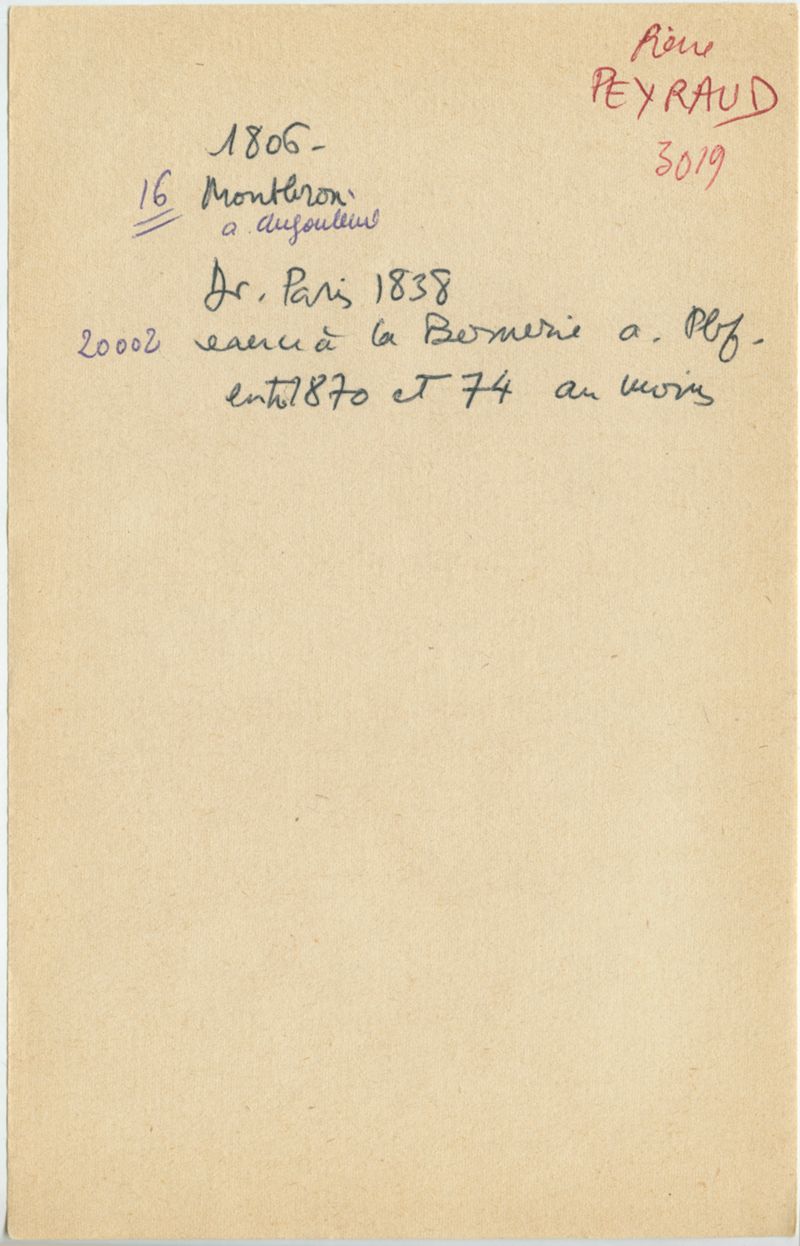 Pierre
PEYRAUD
3019
1806-
16 Montbron
a. Angoulême
Dr. Paris 1838
20002 exerce à la Bernerie a. Pbf.
entre 1870 et 74 au moins